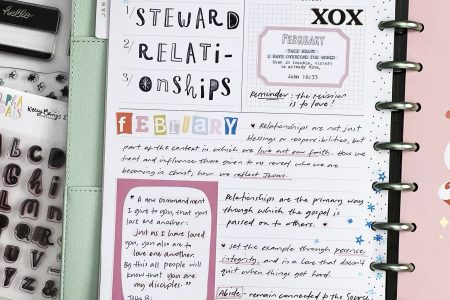 1/ STEWARD
2/ RELATI-
3/ onships
XOX
FEBRUARY
TAKE HEART!
I HAVE OVERCOME THE WORLD
John 16:33
Reminder: the mission
is to love!
FEBRUARY
Relationships are not just
blessings or responsibilities, but
part of the context in which we live out our faith. How we
treat and influence those given to us reveals who we are
becoming in Christ, how we reflect Jesus.
A new commandment
I give to you, that you
love one another:
just as I have loved
you, you also are to
love one another.
By this all people will
know that you are
my disciples."
John 13:
Relationships are the primary way
through which the gospel is
passed on to others.
set the example through presence,
integrity, and in a love that doesn't
quit when things get hard.
Abide - remain connected to the Source
Kelly
b c d